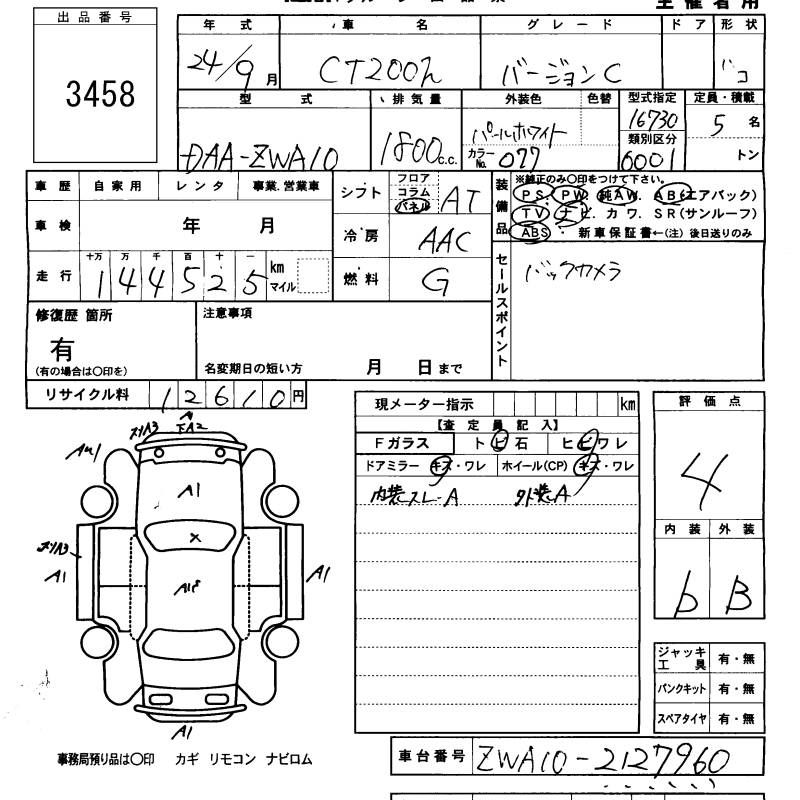 主催者用
出品番号
3458
年式 車名 グレード ドア 形状
24/9月 CT200h バージョンC バコ
型式 排気量 外装色 色替 型式指定 定員・積載
DAA-ZWA10 1800c.c. パールホワイト 16730 5名
カラーNo. 077 類別区分 0001 トン
車歴 自家用 レンタ 事業.営業車
シフト フロア コラム パネル AT
装備品 ※純正のみ〇印をつけて下さい。
PS. PW. 純AW. AB(エアバック)
TV ナビ. カワ. SR(サンルーフ)
ABS ・ 新車保証書←(注)後日送りのみ
車検 年 月
冷房 AAC
走行 十万 万 千 百 十 一
144525 km マイル
燃料 G
セールスポイント バックカメラ
修復歴 箇所
有
(有の場合は〇印を)
注意事項
名変期日の短い方 月 日まで
リサイクル料 12610円
現メーター指示 km
【査定員記入】
Fガラス トビ石 ヒビワレ
ドアミラー キズ・ワレ ホイール(CP) キズ・ワレ
内装スレ-A 外装A
評価点
4
内装 外装
b B
ジャッキ工具 有・無
パンクキット 有・無
スペアタイヤ 有・無
A1
A1
A1
A1
X
A1
事務局預り品は〇印 カギ リモコン ナビロム
車台番号 ZWA10-2127960